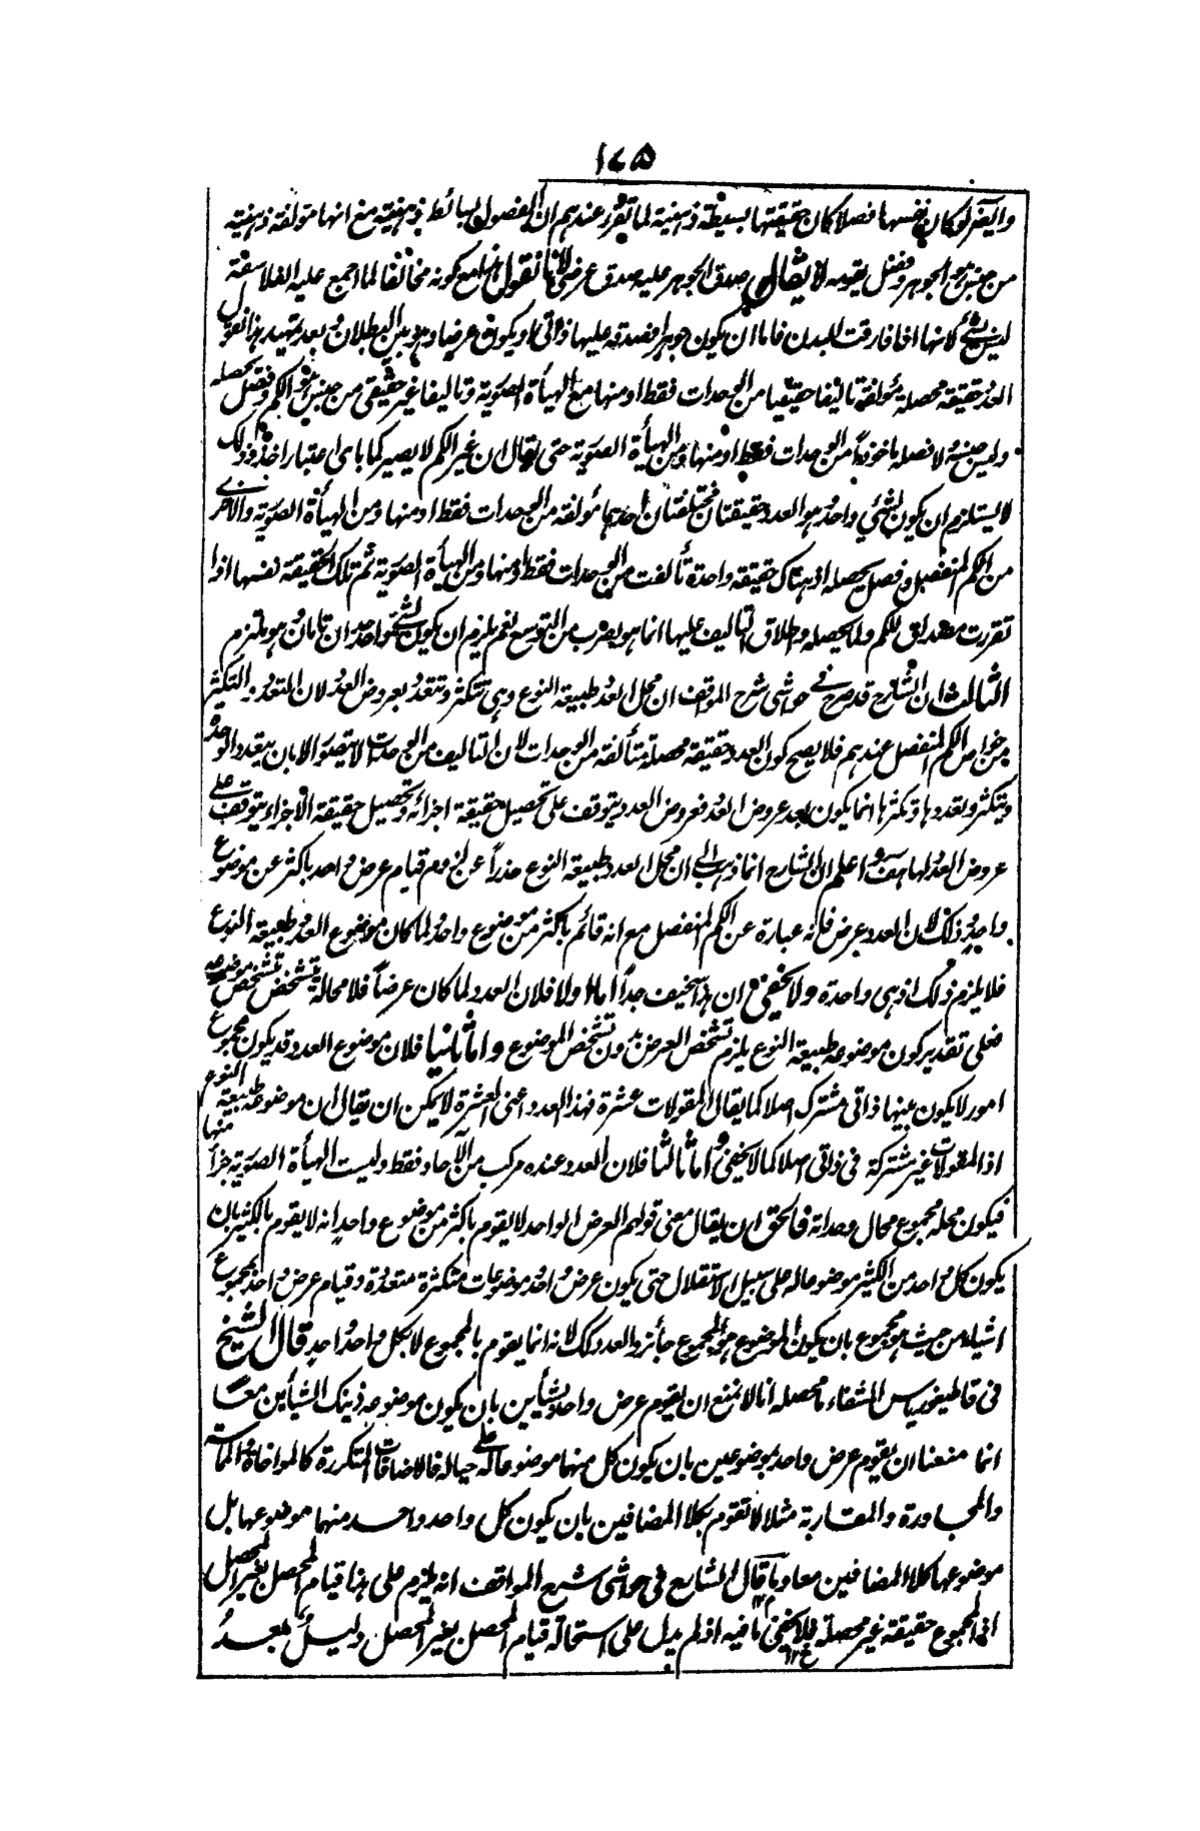 ١٧٥
وايضا لو كان نفسها فصلا كان حقيقتها بسيطة ذهنية لما تقرر عندهم ان الفصول بسائط ذهنية مع انها مؤلفة ذهنية
من جنس هو الجوهر وفصل يقومه لا يقال صدق الجوهر عليه صدق عرضي لانا نقول هذا مع كونه مخالفا لما اجمع عليه الفلاسفة
ليس بشئ لانها اذا فارقت البدن فاما ان يكون جوهرا فصدقه عليها ذاتي او يكون عرضا وهو بين البطلان وبعد تمهيد هذا نقول
العدد حقيقة محصلة مؤلفة تاليفا حقيقيا من الوحدات فقط او منها مع الهيأة الصورية وتاليفا غير حقيقي من جنس هو الكم وفصل يحصله
وليس جنسه لا فصله ماخوذا من الوحدات فقط او منها ومن الهيأة الصورية حتى يقال ان غير الكم لا يصير كما باى اعتبار اخذ وذلك
لا يستلزم ان يكون لشئ واحد هو العدد حقيقتان مختلفتان احدهما مؤلفة من الوحدات فقط او منها ومن الهيأة الصورية والاخرى
من الكم المنفصل وفصل يحصله اذ هناك حقيقة واحدة تألفت من الوحدات فقط او منها ومن الهيأة الصورية ثم تلك الحقيقة نفسها اذا
تقررت مصداق للكم ولما يحصله واطلاق التاليف عليها انما هو بضرب من التوسع نعم يلزم ان يكون لشئ واحد حدان تامان وهو ملتزم
الثالث ان الشارح قد صرح في حواشي شرح المواقف ان محل العدد طبيعة النوع وهي تتكثر وتتعدد بعروض العدد لان التعدد والتكثر
من خواص الكم المنفصل عندهم فلا يصح كون العدد حقيقة محصلة متألفة من الوحدات لان التاليف من الوحدات لا يتصور الا بان يتعدد الوحدة
وتتكثر وتعددها وتكثرها انما يكون بعد عروض العدد فعروض العدد يتوقف على تحصيل حقيقة اجزائه وتحصيل حقيقة الاجزاء يتوقف على
عروض العدد لها هف واعلم ان الشارح انما ذهب الى ان محل العدد طبيعة النوع حذرا عن لزوم قيام عرض واحد باكثر عن موضوع
واحد وذلك لان العدد عرض فانه عبارة عن الكم المنفصل مع انه قائم باكثر من موضوع واحد ولما كان موضوع العدد طبيعة النوع
فلا يلزم ذلك اذ هي واحدة ولا يخفى ان هذا سخيف جدا اما اولا فلان العدد لما كان عرضا فلا محالة يتشخص بتشخص موضوعه
فعلى تقدير كون موضوعه طبيعة النوع يلزم تشخص العرض بدون تشخص الموضوع واما ثانيا فلان موضوع العدد قد يكون مجموع
امور لا يكون بينها ذاتي مشترك اصلا كما يقال المقولات عشرة فهذا العدد اعنى العشرة لا يمكن ان يقال ان موضوعه طبيعة النوع
اذ المقولات غير مشتركة في ذاتي اصلا كما لا يخفى واما ثالثا فلان العدد عنده مركب من الآحاد فقط وليست الهيأة الصورية جزأ منها
فيكون محله مجموع محال وحداته فالحق ان يقال معنى قولهم العرض الواحد لا يقوم باكثر من موضوع واحد انه لا يقوم بالكثير بان
يكون كل واحد من الكثير موضوعا له على سبيل الاستقلال حتى يكون عرض واحد موضوعات متكثرة متعددة وقيام عرض واحد بمجموع
اشياء من حيث هو مجموع بان يكون الموضوع هو المجموع جائز والعدد كك لانه انما يقوم بالمجموع لا بكل واحد واحد قال الشيخ
في قاطيغورياس الشفاء ما محصله انا لا نمنع ان يقوم عرض واحد بشأيين بان يكون موضوعه ذينك الشيأين معا
انما منعنا ان يقوم عرض واحد بموضوعين بان يكون كل منهما موضوعا له على حياله فالاضافات المتكررة كالمواخاة والمماسة
والمجاورة والمقاربة مثلا لا تقوم بكلا المضافين بان يكون كل واحد واحد منهما موضوعها بل
موضوعها كلا المضافين معا وما قال الشارح في حواشي شرح المواقف انه يلزم على هذا قيام المحصل بغير المحصل
اذ المجموع حقيقة غير محصلة فلا يخفى ما فيه اذ لم يدل على استحالة قيام المحصل بغير المحصل دليل بعد